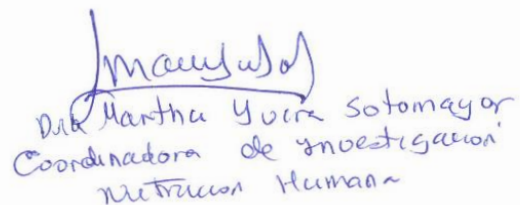 Dra Martha Yvira Sotomayor
Coordinadora de Ynvestigacion
Nutricion Humana